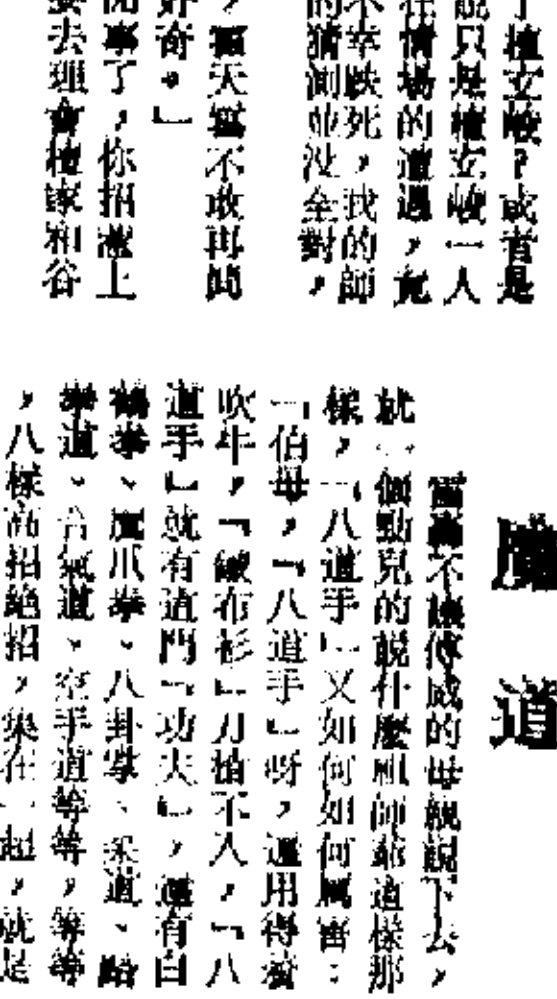 了檀立峻？或者是
說只是檀立峻一人
在情場的遭遇，竟
不幸跌死，我的師
的猜測並沒全對，
，雷天 不敢再問
好奇。」
閒事了，你招惹上
要去理會檀家和谷
魔道
雷 不讓傅威的母親說下去，
就一個勁兒的說什麼祖師爺這樣那
樣，「八道手」又如何如何厲害：
「伯母，「八道手」呀，還用得着
吹牛，「鐵布衫」刀槍不入，「八
道手」就有道門「功夫」，還有白
鶴拳、鷹爪拳、八卦掌、柔道、跆
拳道、合氣道、空手道等等，等等
，八樣高招絕招，集在一起，就是